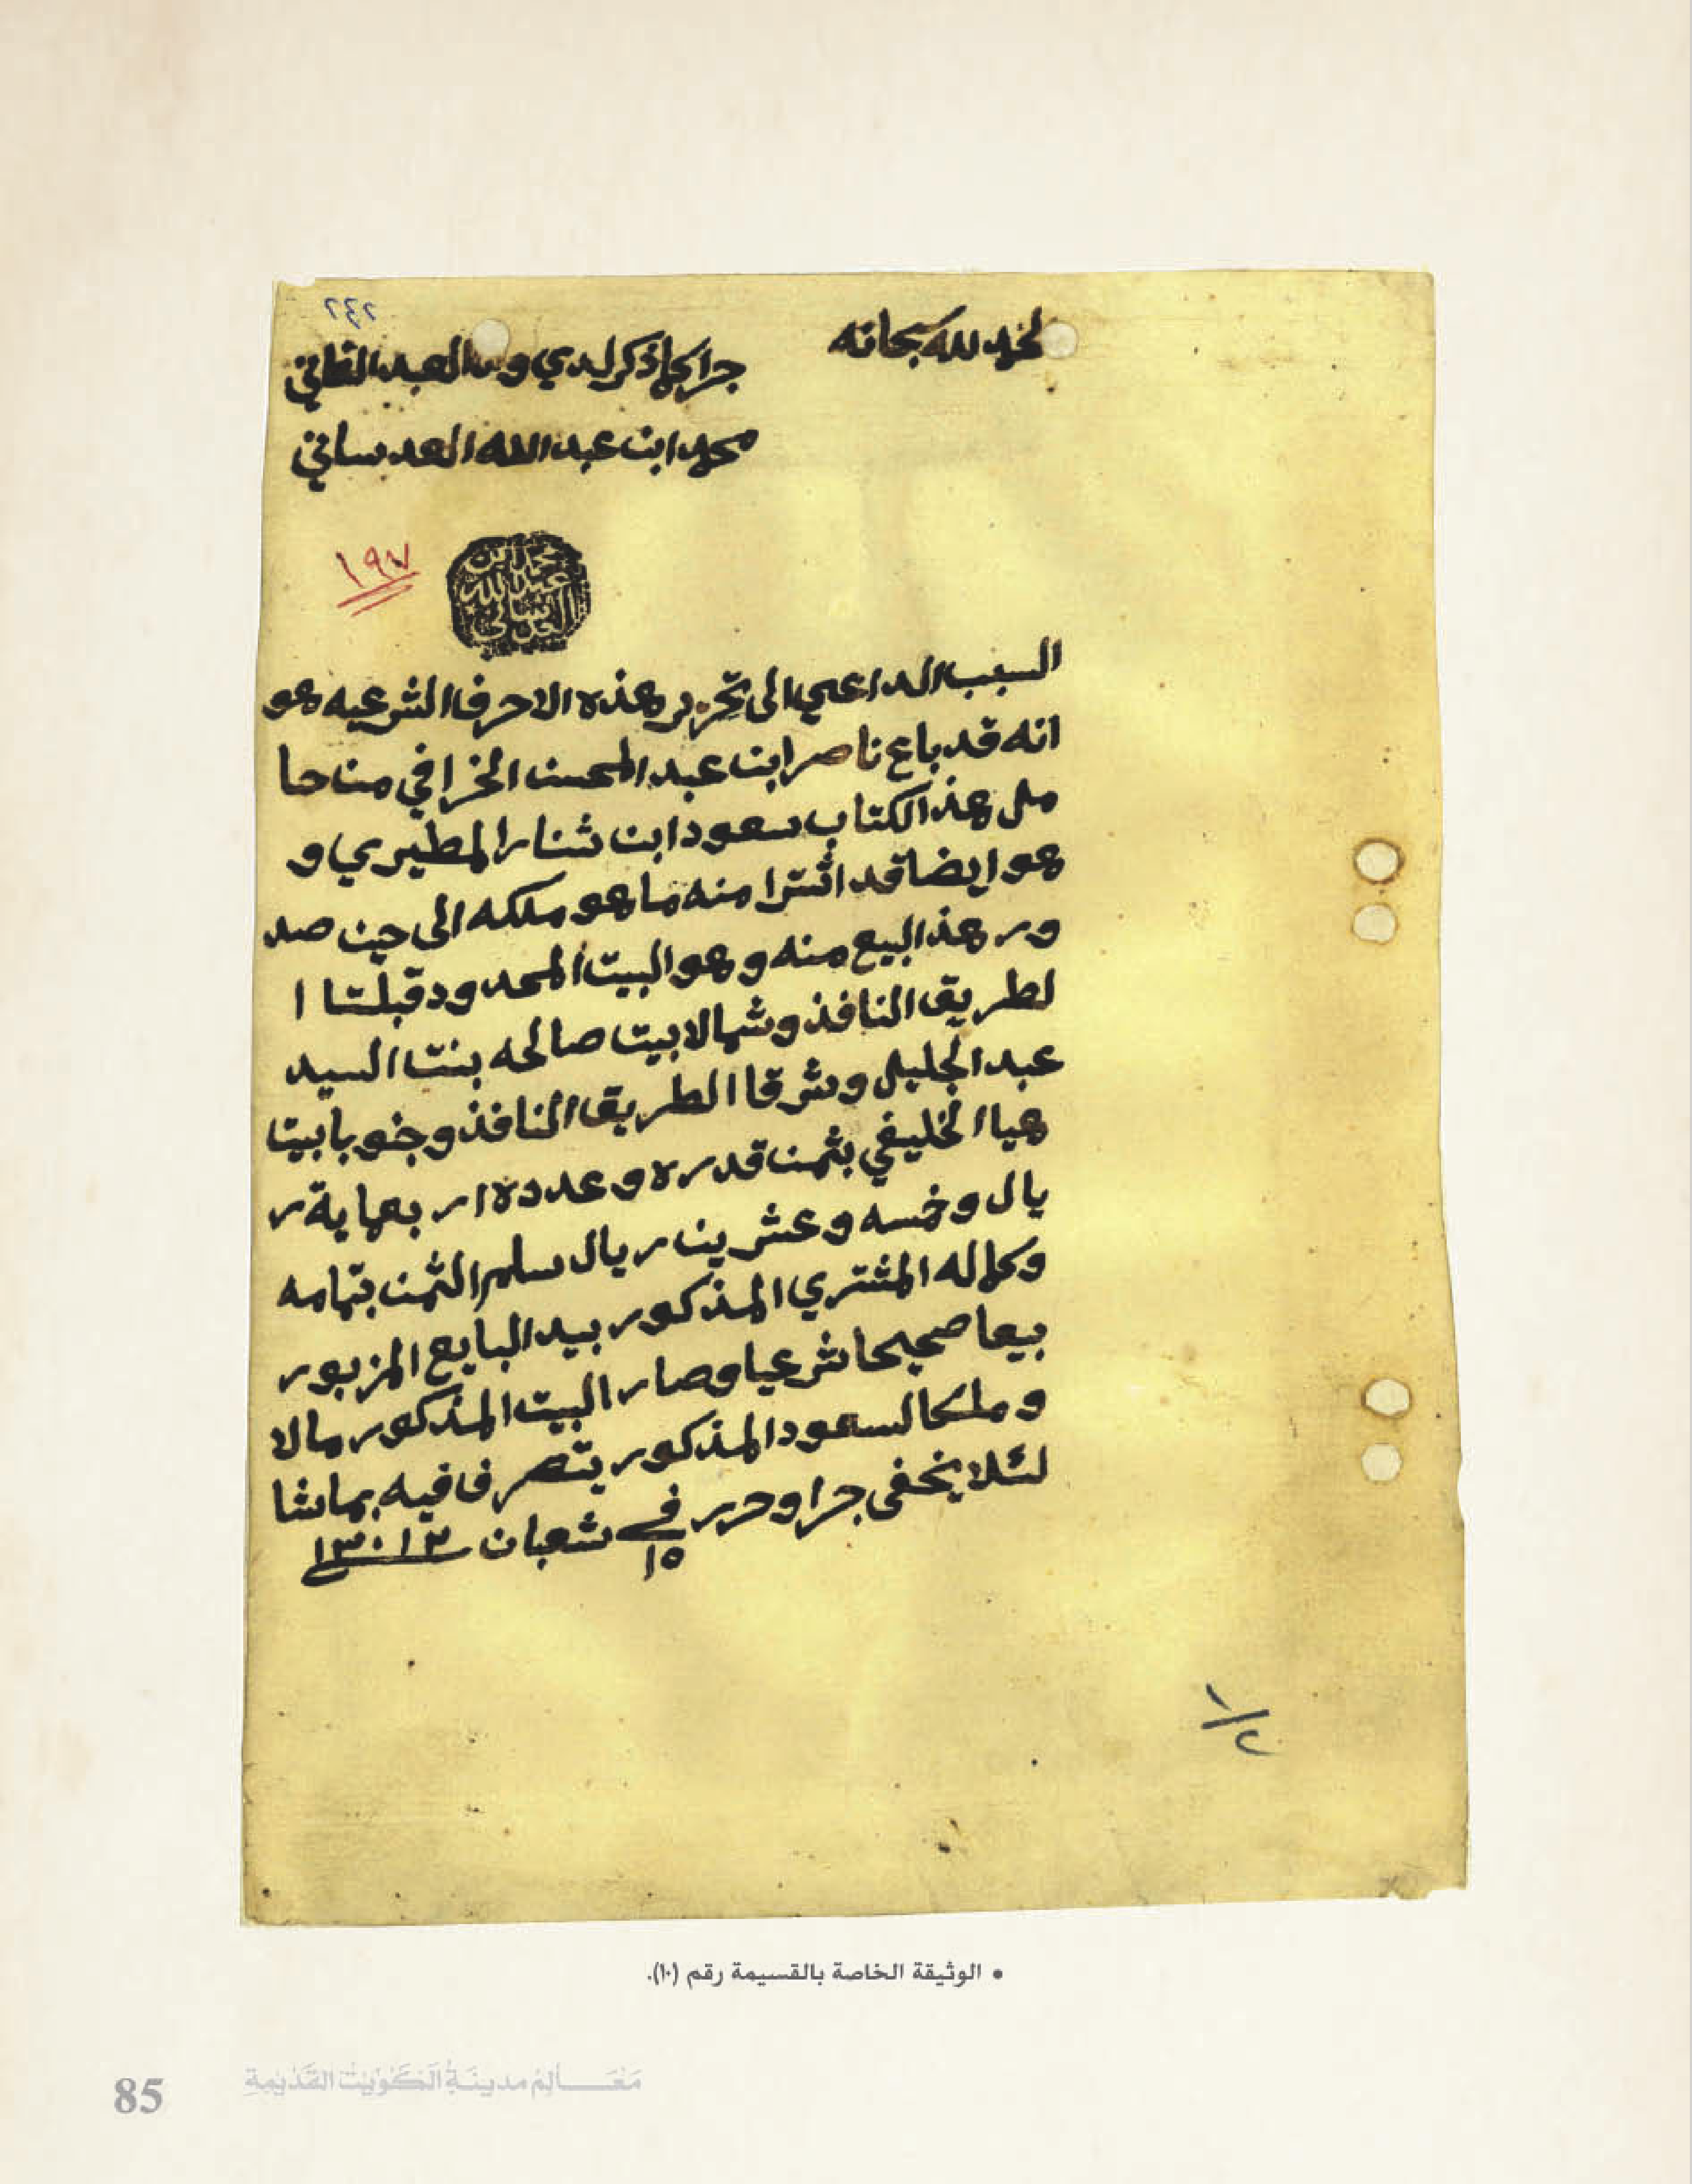 ٢٤٢
الحمد لله سبحانه
جرا كما ذكر لدي وانا العبد الفاني
محمد ابن عبد الله العدساني
١٩٧
محمد ابن
عبد الله
العدساني
السبب الداعي الى تحرير هذه الاحرف الشرعيه هو
انه قد باع ناصر ابن عبد المحسن الخرافي من حا
مل هذ الكتاب سعود ابن شنار المطيري و
هو ايضا قد اشترا منه ما هو ملكه الى حين صد
ور هذ البيع منه وهو البيت المحدود قبلتا ا
لطريق النافذ وشمالا بيت صالحه بنت السيد
عبد الجليل وشرقا الطريق النافذ وجنوبا بيت
هيا الخليفي بثمن قدره وعدده اربعماية ر
يال وخمسه وعشرين ريال سلم الثمن بتمامه
وكماله المشتري المذكور بيد البايع المزبور
بيعا صحيحا شرعيا وصار البيت المذكور مالا
وملكا لسعود المذكور يتصرف فيه بما شا
لئلا يخفى جرا وحرر في ١٥ شعبان ١٣٠١٣
١/٢
• الوثيقة الخاصة بالقسيمة رقم (١٠).
85
مَعَالِمُ مدينَةِ الكُوَيْتِ القَدِيْمَةِ